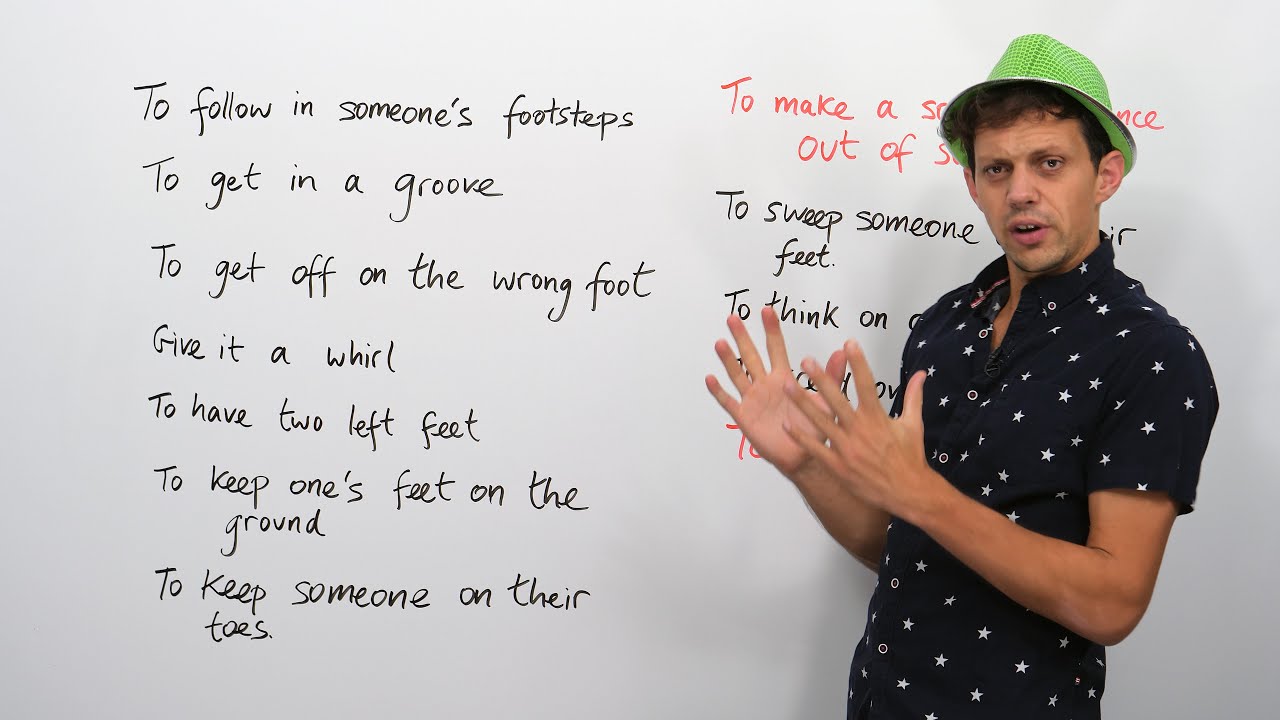 To follow in someone's footsteps
To get in a groove
To get off on the wrong foot
Give it a whirl
To have two left feet
To keep one's feet on the
ground
To keep someone on their
toes.
To make a
out of
To sweep someone
feet.
To think on
To